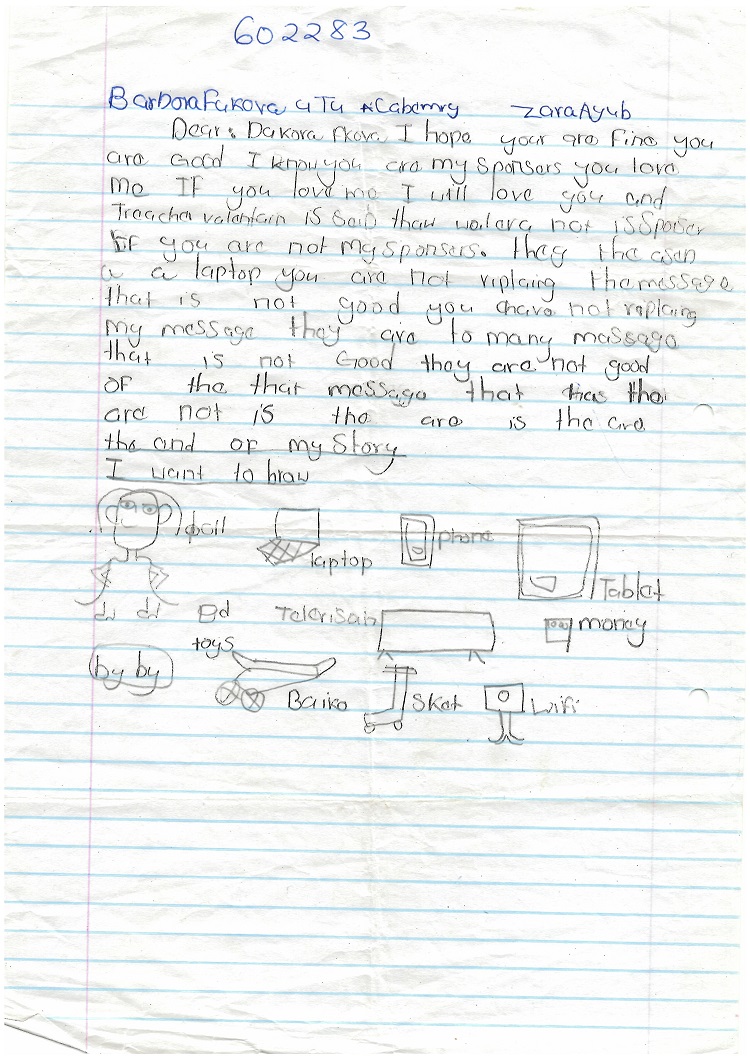 602283
Barbora Fukova 4T4 ACabemry Zara Ayub
Dear: Dakora Fkova I hope your are Fine you
are Good I know you are my sponsers you love
me IF you love me I will love you and
Treacher valantain is said thaw walara not is Sponser
IF you are not my sponsers. they the
a a laptop you are not riplaing the message
that is not good you chare not replaing
my message they are to many massage
that is not Good they are not good
OF the that message that thas the
are not is the are is the are
the and OF my Story
I want to braw
doll
laptop
phone
Tablet
Bd
Televisain
money
toys
by by
Baiko
Skot
Wifi